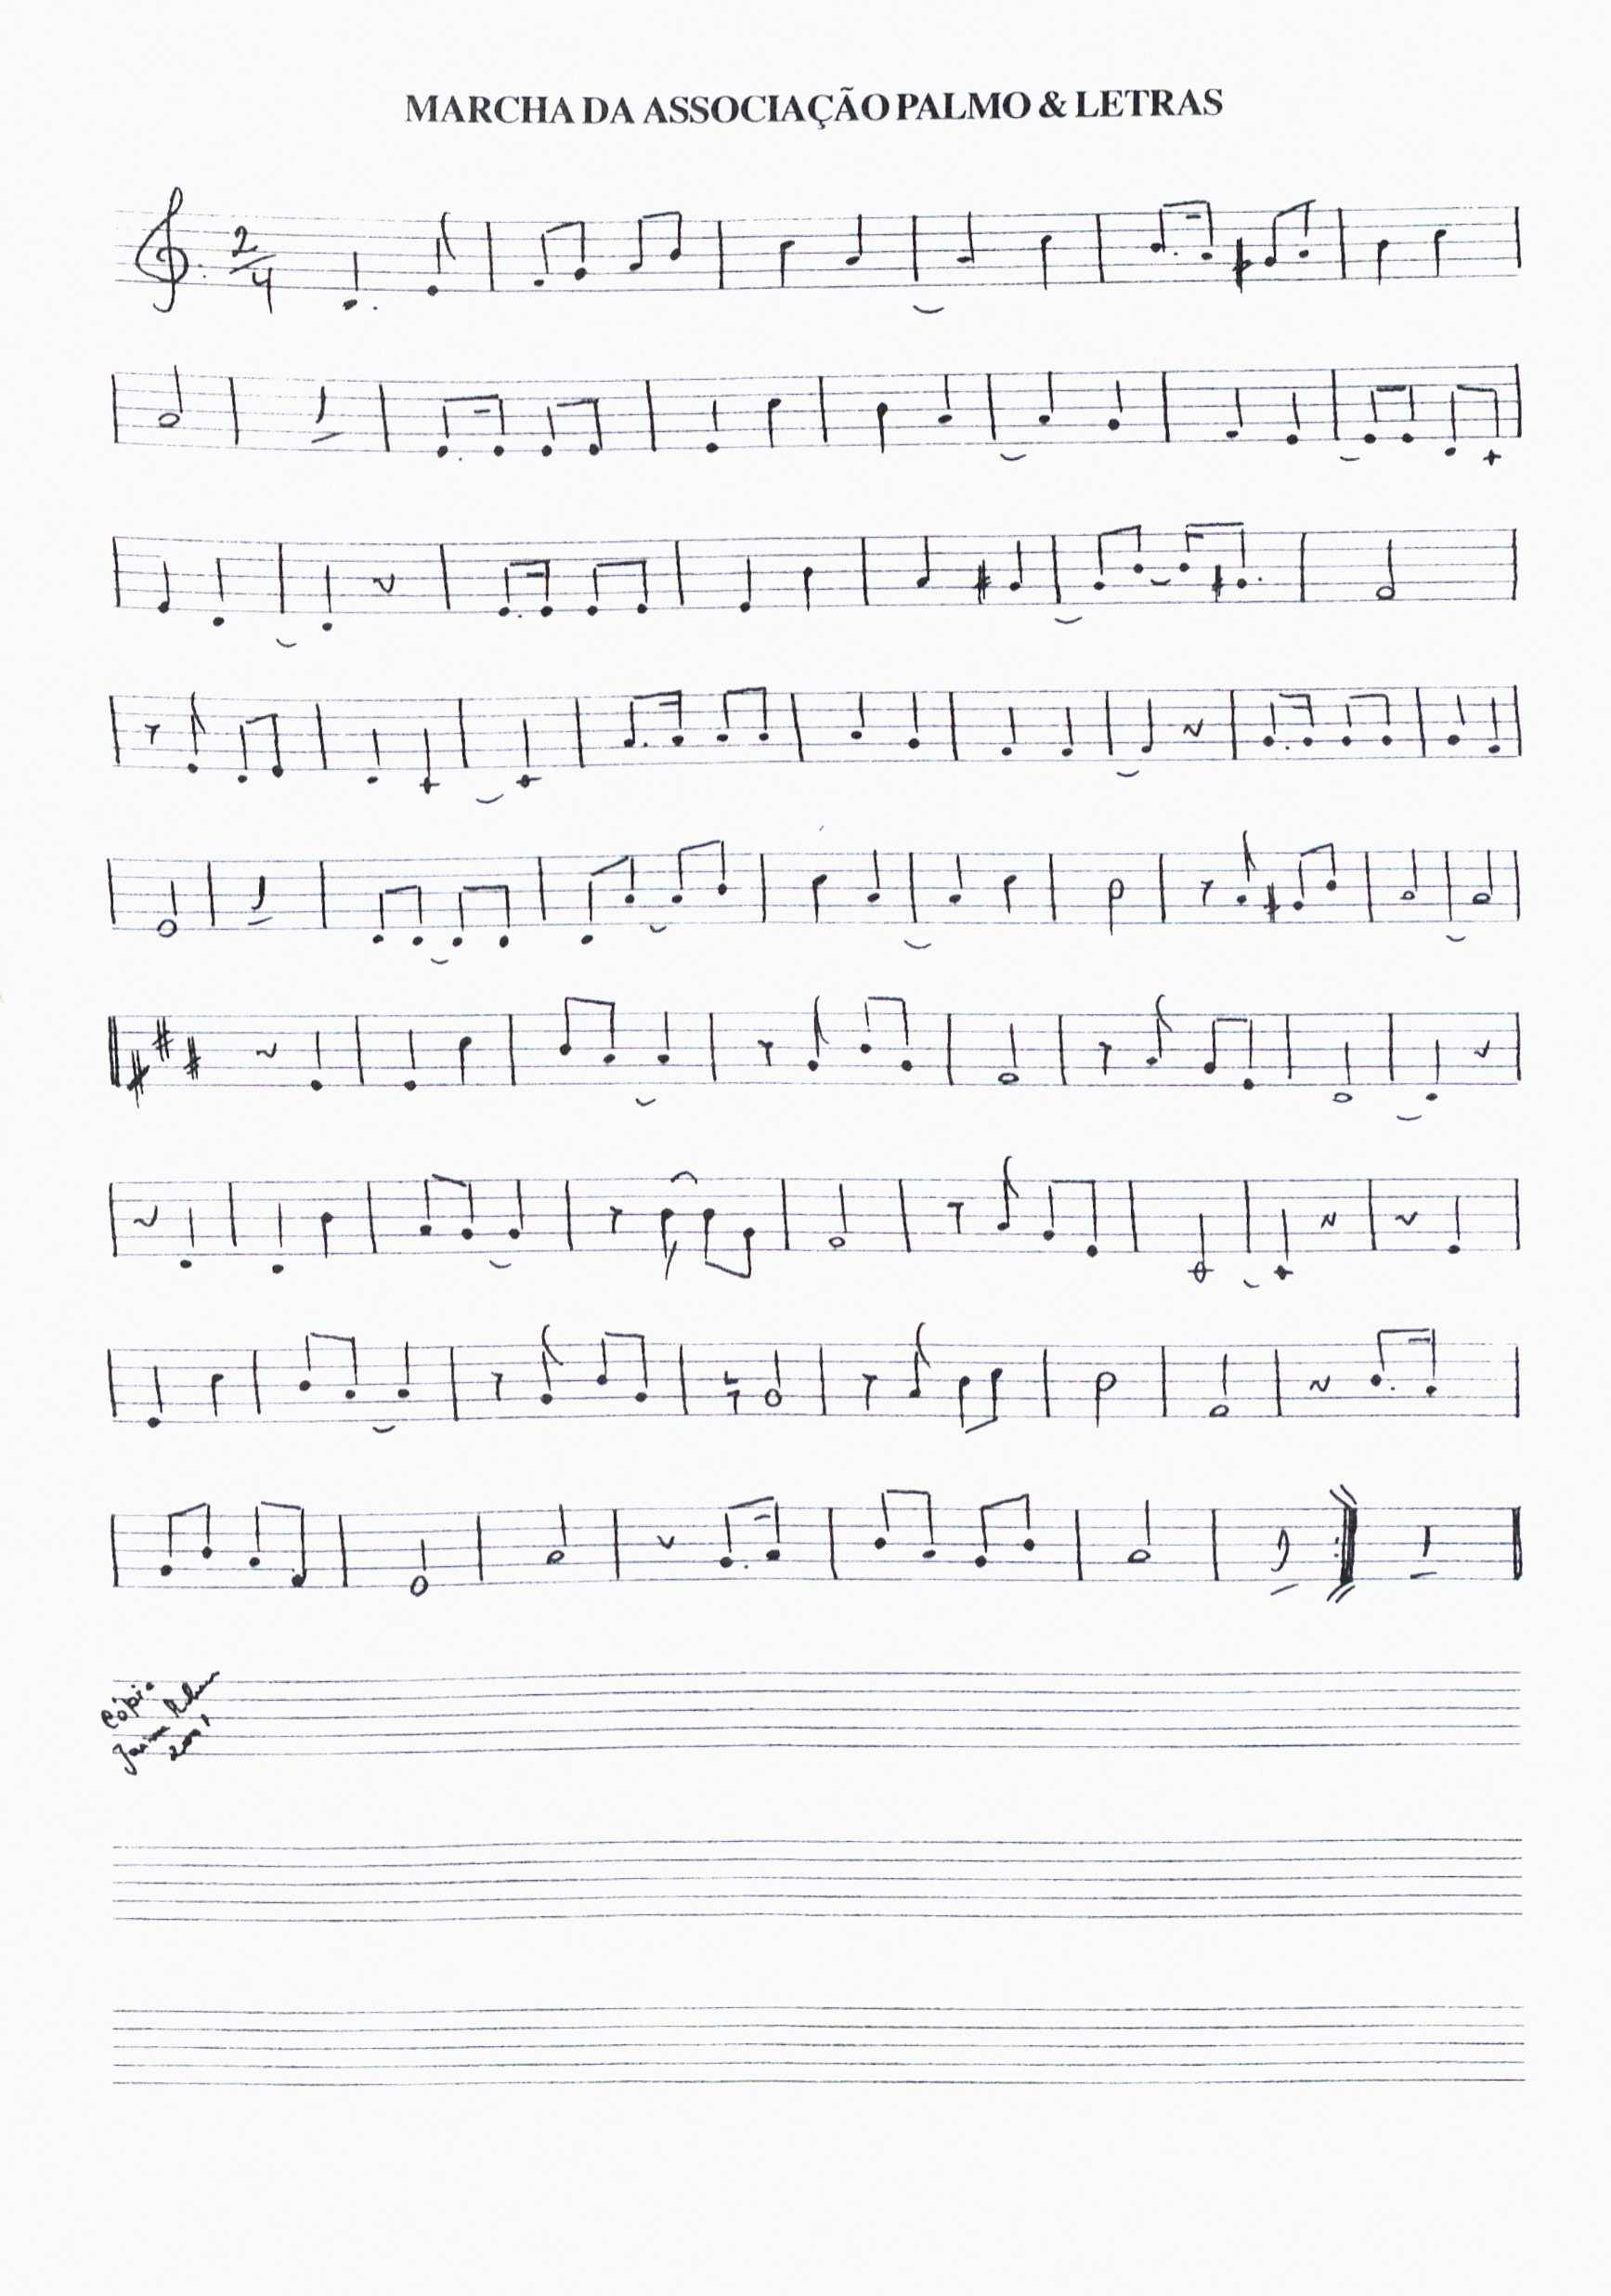 MARCHA DA ASSOCIAÇÃO PALMO & LETRAS
2
4
Cópia
2001